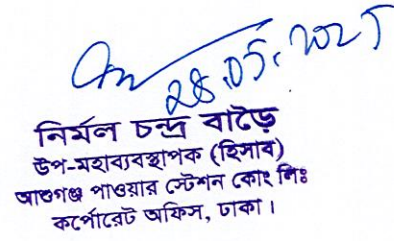 28.05.2025
নির্মল চন্দ্র বাড়ৈ
উপ-মহাব্যবস্থাপক (হিসাব)
আশুগঞ্জ পাওয়ার স্টেশন কোং লিঃ
কর্পোরেট অফিস, ঢাকা।